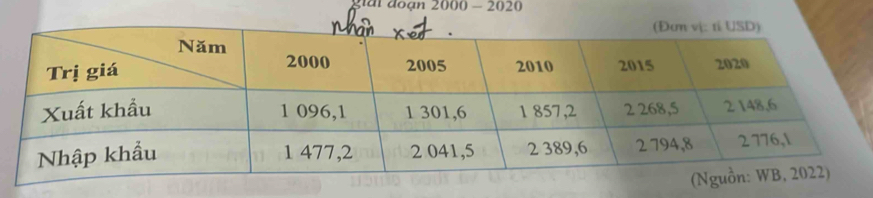 giai đoạn 2000 – 2020
nhận xét.
(Đơn vị: tỉ USD)
Năm
Trị giá 2000 2005 2010 2015 2020
Xuất khẩu 1 096,1 1 301,6 1 857,2 2 268,5 2 148,6
Nhập khẩu 1 477,2 2 041,5 2 389,6 2 794,8 2 776,1
(Nguồn: WB, 2022)